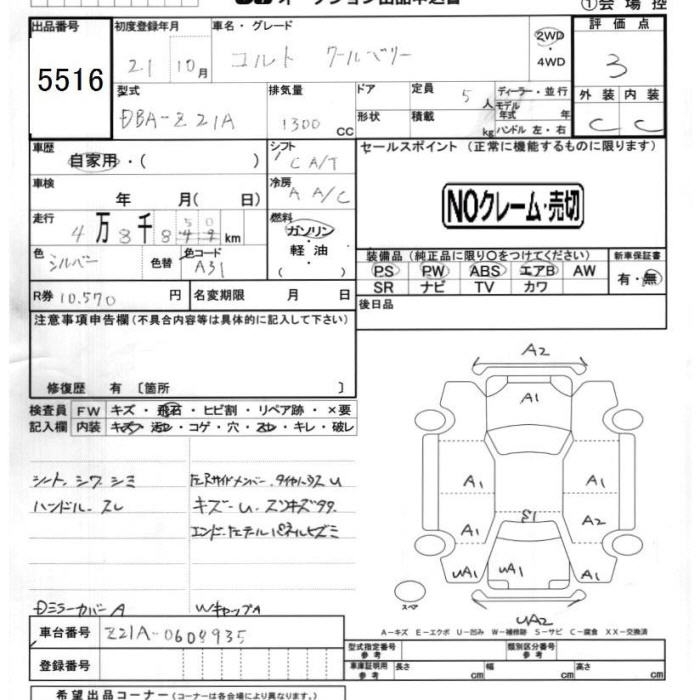 オークション出品申込書
①会場控
出品番号
初度登録年月
車名・グレード
評価点
5516
21 10月
コルト クールベリー
2WD
・
4WD
3
型式
排気量
ドア
定員
ディーラー・並行
外装 内装
DBA-Z21A
1300 CC
5人
モデル年式 年
形状
積載
kg
ハンドル 左・右
C C
車歴
シフト
セールスポイント (正常に機能するものに限ります)
自家用・( )
C A/T
車検
冷房
年 月( 日)
A A/C
NOクレーム・売切
走行
燃料
4万8千8 50 km
ガソリン
軽油
( )
色
色替
色コード
シルバー
A31
装備品 (純正品に限り○をつけてください)
新車保証書
PS PW ABS エアB AW
有・無
SR ナビ TV カワ
R券 10,570 円
名変期限 月 日
後日品
注意事項申告欄(不具合内容等は具体的に記入して下さい)
修復歴 有〔箇所 〕
検査員 FW キズ・飛石・ヒビ割・リペア跡・×要
記入欄 内装 キズ・汚レ・コゲ・穴・スレ・キレ・破レ
A2
A1
シート、シワ シミ
ハンドル スレ
A1 A1
S1
A1 A2
UA1 UA1 A1
スペア
UA2
ドミラーカバーA
WキャップA
A-キズ E-エクボ U-凹み W-補修跡 S-サビ C-腐食 XX-交換済
車台番号 Z21A-0604935
型式指定番号 参考
類別区分番号 参考
登録番号
車庫証明用 参考 長さ cm 幅 cm 高さ cm
希望出品コーナー(コーナーは各会場により異なります。)